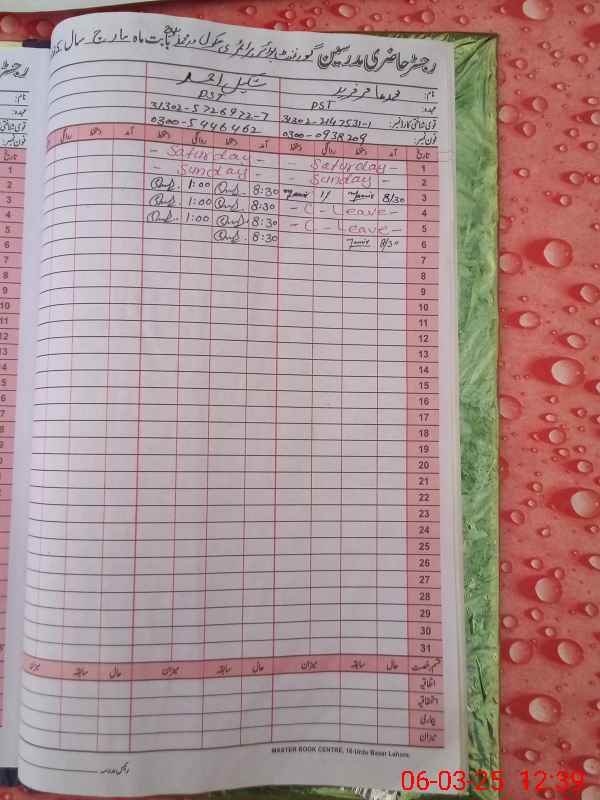 رجسٹر حاضری مدرسین گورنمنٹ بوائز پرائمری سکول بابت ماہ مارچ سال
نام: محمد عامر فرید شکیل احمد
عہدہ: PST PST
قومی شناختی کارڈ نمبر: 31302-2147531-1 31302-5726972-7
فون نمبر: 0300-0938209 0300-5446462
تاریخ آمد دستخط روانگی دستخط آمد دستخط روانگی دستخط
1 - Saturday - - Saturday -
2 - Sunday - - Sunday -
3 8/30 1/ 8:30 1:00
4 - C - Leave - 8:30 1:00
5 - C - Leave - 8:30 1:00
6 8/30 8:30
7
8
9
10
11
12
13
14
15
16
17
18
19
20
21
22
23
24
25
26
27
28
29
30
31
قسم رخصت حال سابقہ میزان حال سابقہ میزان حال سابقہ میزان
اتفاقیہ
استحقاقیہ
بیماری
میزان
MASTER BOOK CENTRE, 16-Urdu Bazar Lahore.
رئیس مدرسہ
06-03-25 12:39